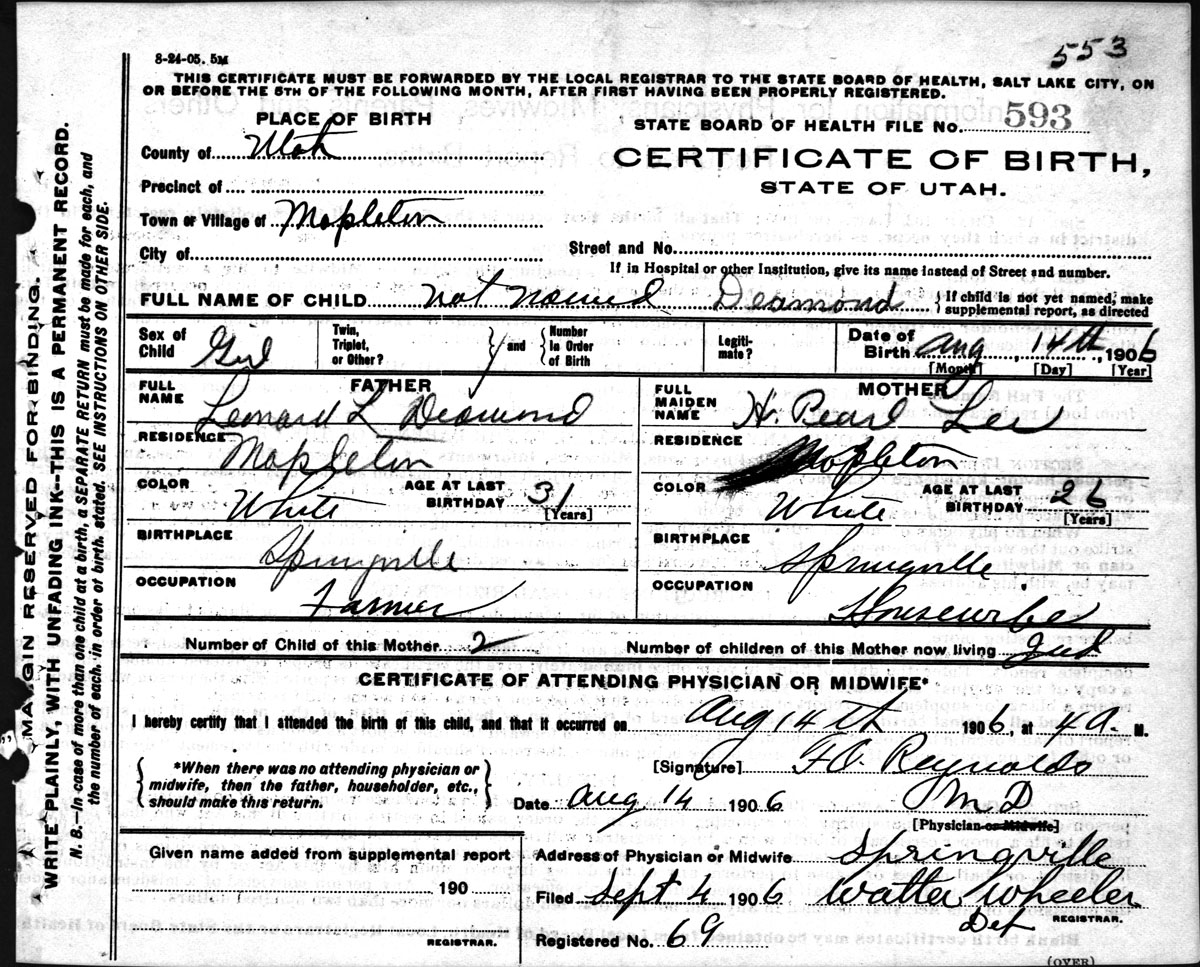 553
8-24-05. 5M
THIS CERTIFICATE MUST BE FORWARDED BY THE LOCAL REGISTRAR TO THE STATE BOARD OF HEALTH, SALT LAKE CITY, ON
OR BEFORE THE 5TH OF THE FOLLOWING MONTH, AFTER FIRST HAVING BEEN PROPERLY REGISTERED.
PLACE OF BIRTH
STATE BOARD OF HEALTH FILE No. 593
County of Utah
CERTIFICATE OF BIRTH,
Precinct of
STATE OF UTAH.
Town or Village of Mapleton
City of
Street and No.
If in Hospital or other Institution, give its name instead of Street and number.
FULL NAME OF CHILD not named Deamond { If child is not yet named, make supplemental report, as directed
Sex of Child Girl Twin, Triplet, or Other? } and { Number in Order of Birth Legiti-mate? Date of Birth Aug 14th, 1906
[Month] [Day] [Year]
FATHER
FULL NAME Leonard L Deamond
RESIDENCE Mapleton
COLOR White AGE AT LAST BIRTHDAY 31 [Years]
BIRTHPLACE Springville
OCCUPATION Farmer
MOTHER
FULL MAIDEN NAME H. Pearl Lee
RESIDENCE Mapleton
COLOR White AGE AT LAST BIRTHDAY 26 [Years]
BIRTHPLACE Springville
OCCUPATION Housewife
Number of Child of this Mother 2 Number of children of this Mother now living 2nd
CERTIFICATE OF ATTENDING PHYSICIAN OR MIDWIFE*
I hereby certify that I attended the birth of this child, and that it occurred on Aug 14th 1906, at 4 a. M.
{ *When there was no attending physician or midwife, then the father, householder, etc., should make this return. }
[Signature] F.O. Reynolds
Date Aug 14 1906 M D
[Physician or Midwife]
Given name added from supplemental report
190
REGISTRAR.
Address of Physician or Midwife Springville
Filed Sept 4 1906 Walter Wheeler
Dep REGISTRAR.
Registered No. 69
(OVER)
MARGIN RESERVED FOR BINDING.
WRITE PLAINLY, WITH UNFADING INK--THIS IS A PERMANENT RECORD.
N. B.--In case of more than one child at a birth, a SEPARATE RETURN must be made for each, and
the number of each in order of birth stated. SEE INSTRUCTIONS ON OTHER SIDE.